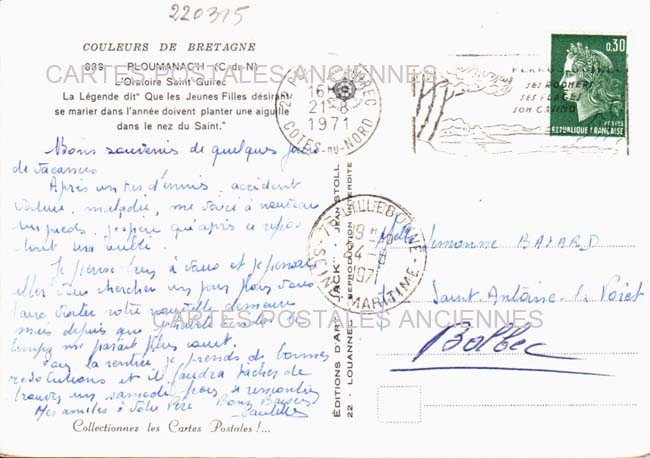 220315
COULEURS DE BRETAGNE
PLOUMANAC'H (C.-du-N)
L'Oratoire Saint Guirec
La Légende dit " Que les Jeunes Filles désirant
se marier dans l'année doivent planter une aiguille
dans le nez du Saint."
CARTES POSTALES ANCIENNES
16H
21-8
1971
COTES-DU-NORD
SES ROCHERS
SES PLAGES
SON CASINO
0,30
REPUBLIQUE FRANÇAISE
Bons souvenirs de quelques jours
de vacances
Après un tas d'ennuis, accident
voiture, maladie, me voici à nouveau
sur pieds, j'espère qu'après ce repos
tout ira
Je pense à vous et je pensais
aller vous chercher un jour pour vous
faire visiter notre nouvelle demeure
mais depuis que
temps me paraît plus court.
Pour la rentrée, je prends de bonnes
résolutions et il faudra tâcher de
trouver un samedi pour se rencontrer
Mes amitiés à votre Père Bons Baisers
76 LILLEBONNE
SEINE-MARITIME
19H
24-8
1971
Melle Simonne BAZARD
St Antoine la Forêt
Bolbec
CARTES POSTALES ANCIENNES
EDITIONS D'ART "JACK"
22 - LOUANNEC
JEAN STOLL
REPRODUCTION INTERDITE
Collectionnez les Cartes Postales !...